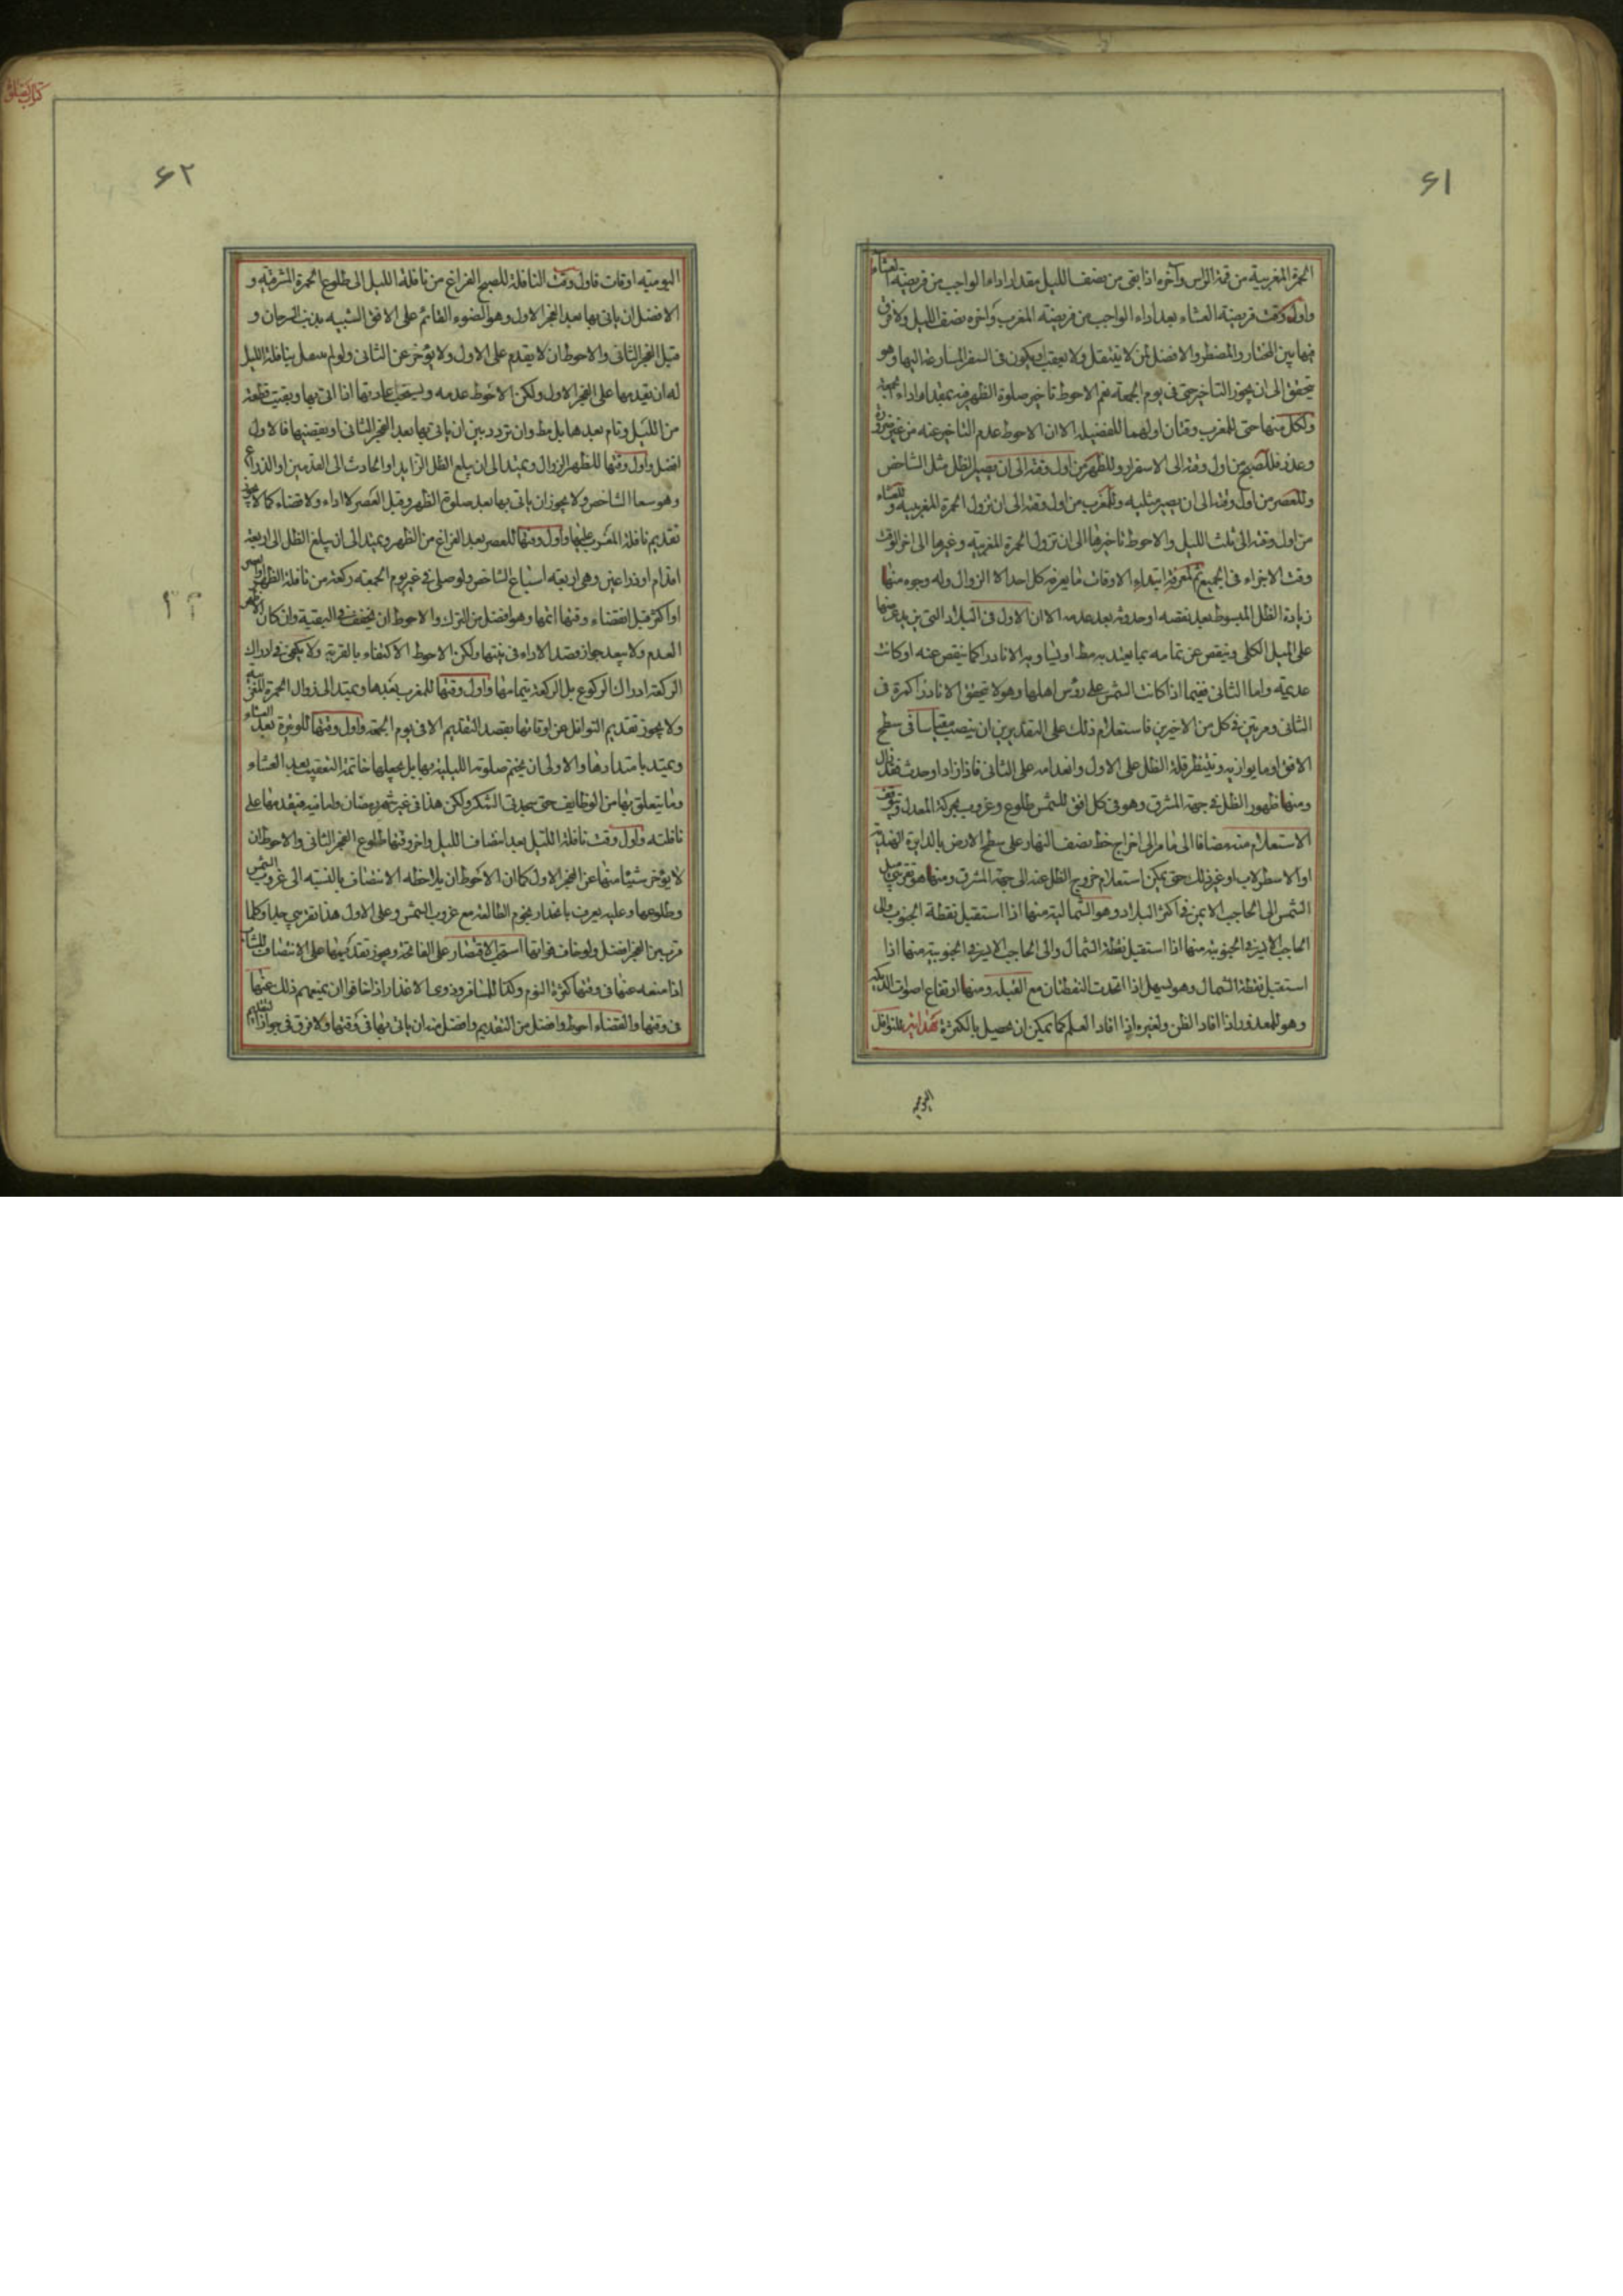 ۶۱
الحمرة المغربية من قمة الراس وآخره اذا بقى من نصف الليل مقدار اداء الواجب من فريضة العشاء
واول وقت فريضة العشاء بعد اداء الواجب من فريضة المغرب وآخره نصف الليل ولا فرق
فيها بين المختار والمضطر والافضل لمن لا يتنفل ولا يعقب ويكون فى السفر المسارعة اليها وهو
يتحقق الى ان يجوز التاخير حتى فى يوم الجمعة نعم الاحوط تاخير صلوة الظهر فيه بمقدار اداء الجمعة
ولكل منها حتى المغرب وقتان اولهما للفضيلة الا ان الاحوط عدم التاخير عنه من غير ضرورة
وعذر فللصبح من اول وقته الى الاسفرار وللظهر من اول وقته الى ان يصير الظل مثل الشاخص
وللعصر من اول وقته الى ان يصير مثليه وللمغرب من اول وقته الى ان تزول الحمرة المغربية وللعشاء
من اول وقته الى ثلث الليل والاحوط تاخيرها الى ان تزول الحمرة المغربية وغيرها الى اخر الوقت
وقت الاجزاء فى الجميع ثم لمعرفة ابتداء الاوقات ما يعرفه كل احد الا الزوال وله وجوه منها
زيادة الظل المبسوط بعد نقصه او حدوثه بعد عدمه الا ان الاول فى البلاد التى يزيد عرضها
على الميل الكلى وينقص عن تمامه بما يعتد به مط او يساويه الا نادرا كما ينقص عنه او كانت
عديمة واما الثانى ففيما اذا كانت الشمس على رؤس اهلها وهو لا يتحقق الا نادرا كمرة فى
الثانى ومرتين فى كل من الاخيرين فاستعلام ذلك على التقديرين ان ينصب مقياسا فى سطح
الافق او ما يوازيه وينتظر قلة الظل على الاول وانعدامه على الثانى فاذا زاد او حدث فقد زال
ومنها ظهور الظل فى جهة المشرق وهو فى كل افق للشمس طلوع وغروب بحركة المعدل ويتوقف
الاستعلام منه مضافا الى ما مر الى اخراج خط نصف النهار على سطح الارض بالدايرة الهندية
او الاسطرلاب او غير ذلك حتى يمكن استعلام خروج الظل عنه الى جهة المشرق ومنها ميل
الشمس الى الحاجب الايمن فى اكثر البلاد وهو الشمالية منها اذا استقبل نقطة الجنوب والى
الحاجب الايسر فى الجنوبية منها اذا استقبل نقطة الشمال والى الحاجب الايسر فى الجنوبية منها اذا
استقبل نقطة الشمال وهو يسهل اذا اتحدت النقطتان مع القبلة ومنها ارتفاع اصوات الديكة
وهو للمعذور اذا افاد الظن ولغيره اذا افاد العلم كما يمكن ان يحصل بالكثرة هداية للنوافل
اليومية
كتاب الصلوة
۶۲
اليومية اوقات فاول وقت النافلة للصبح الفراغ من نافلة الليل الى طلوع الحمرة المشرقية و
الافضل ان ياتى بها بعد الفجر الاول وهو الضوء القائم على الافق الشبيه بذنب السرحان و
قبل الفجر الثانى والاحوط ان لا يقدم على الاول ولا يؤخر عن الثانى ولو لم يصل بنافلة الليل
له ان يقدمها على الفجر الاول ولكن الاحوط عدمه ويستحب اعادتها اذا اتى بها وبقيت قطعة
من الليل ونام بعدها بل مط وان تردد بين ان ياتى بها بعد الفجر الثانى او يقضيها فالاول
افضل واول وقتها للظهر الزوال ويمتد الى ان يبلغ الظل الزايد او الحادث الى القدمين او الذراع
وهو سبعا الشاخص ولا يجوز ان ياتى بها بعد صلوة الظهر وقبل العصر لا اداء ولا قضاء كما لا يجوز
تقديم نافلة المغرب عليها واول وقتها للعصر بعد الفراغ من الظهر ويمتد الى ان يبلغ الظل الى اربعة
اقدام او ذراعين وهى اربعة اسباع الشاخص ولو صلى فى غير يوم الجمعة ركعة من نافلة الظهر او العصر
او اكثر قبل انقضاء وقتها اتمها وهو افضل من الترك والاحوط ان يخفف فى البقية وان كان الاظهر
العدم ولا يبعد جواز قصد الاداء فى نيتها ولكن الاحوط الاكتفاء بالقربة ولا يكفى فى ادراك
الركعة ادراك الركوع بل الركعة بتمامها واول وقتها للمغرب بعدها ويمتد الى زوال الحمرة المغربية
ولا يجوز تقديم النوافل عن اوقاتها بقصد التقديم الا فى يوم الجمعة واول وقتها للوتيرة بعد العشاء
ويمتد بامتدادها والاولى ان يختم صلوته الليلية بها بل يجعلها خاتمة التعقيب بعد العشاء
وما يتعلق بها من الوظايف حتى سجدتى الشكر ولكن هذا فى غير شهر رمضان واما فيه فيقدمها على
نافلته واول وقت نافلة الليل بعد انتصاف الليل واخر وقتها طلوع الفجر الثانى والاحوط ان
لا يؤخر شيئا منها عن الفجر الاول كما ان الاحوط ان يلاحظه الانتصاف بالنسبة الى غروب الشمس
وطلوعها وعليه يعرف بانحدار نجوم الطالعة مع غروب الشمس وعلى الاول هذا تقريبى جدا وكلما
قرب من الفجر افضل ولو خاف فواتها استحب الاقتصار على الفاتحة ويجوز تقديمها على الانتصاف للشاب
اذا منعه عنها فى وقتها كثرة النوم وكذا للمسافر وذوى الاعذار اذا خافوا ان يمنعهم ذلك عنها
فى وقتها والقضاء احوط وافضل من التقديم وافضل منه ان ياتى بها فى وقتها ولا فرق فى جواز التقديم